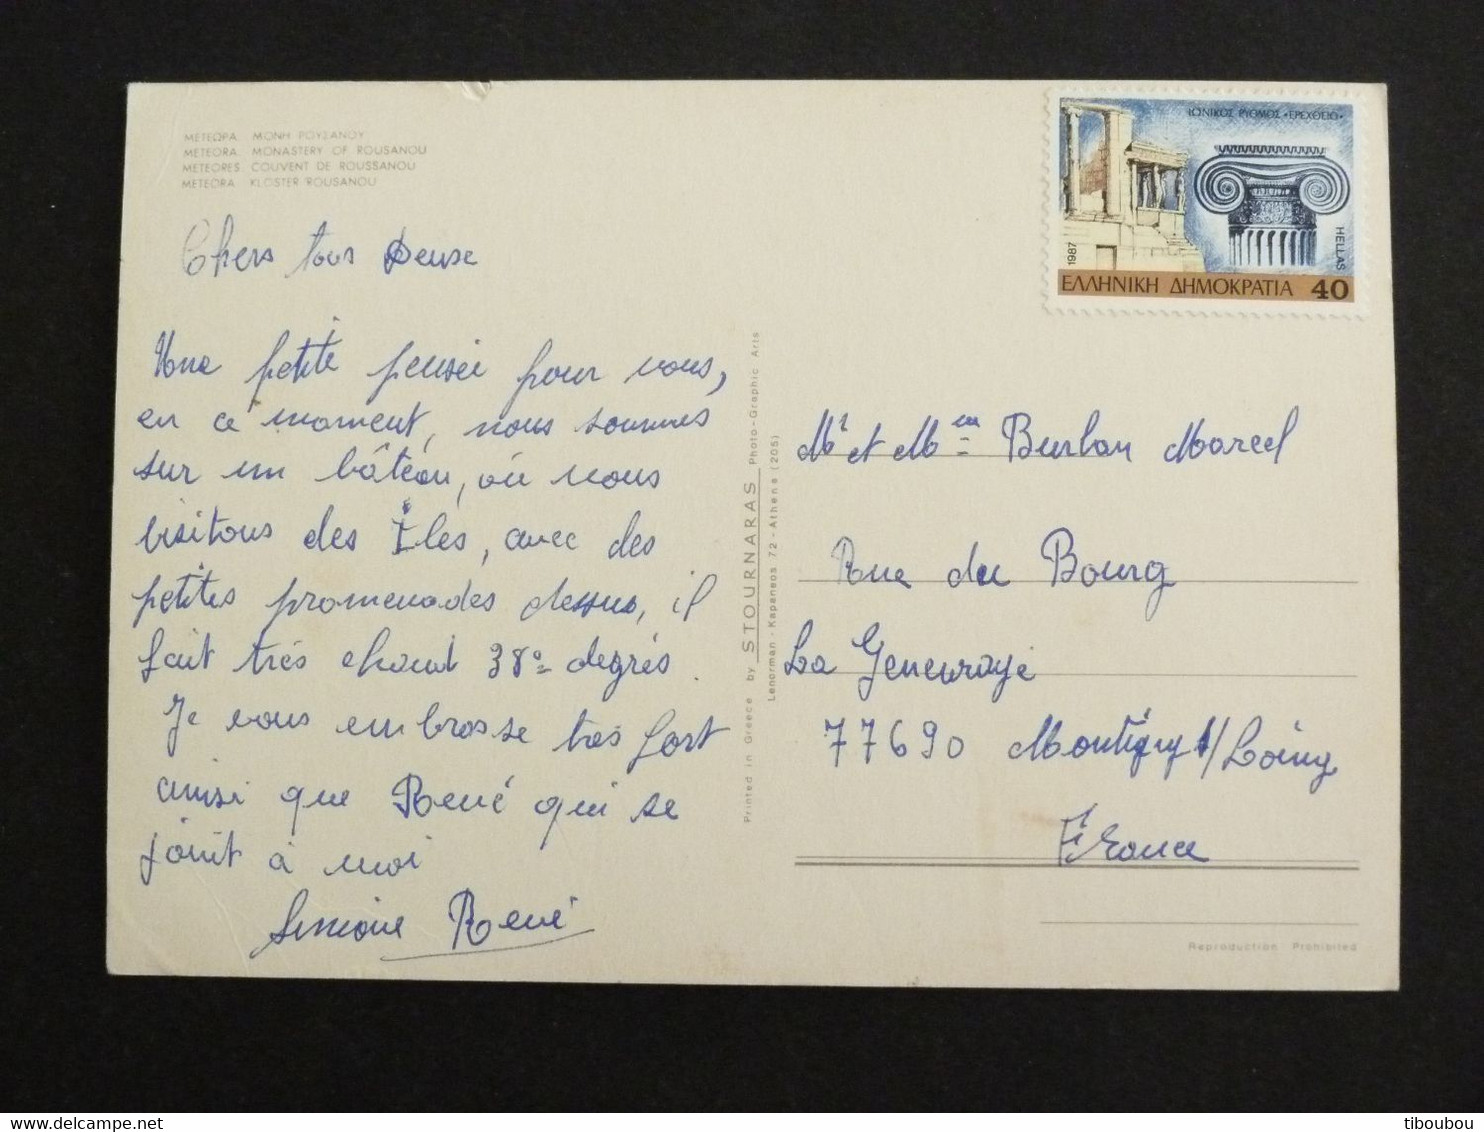 ΜΕΤΕΩΡΑ. ΜΟΝΗ ΡΟΥΣΑΝΟΥ
METEORA. MONASTERY OF ROUSANOU
METEORES. COUVENT DE ROUSSANOU
METEORA. KLOSTER ROUSANOU
Chers tous deuse
Une petite pensée pour vous,
en ce moment, nous sommes
sur un bâteau, où nous
visitons des Îles, avec des
petites promenades dessus, il
fait très chaud 38° degrés.
Je vous embrosse très fort
ainsi que René qui se
joint à moi
Simone René
Printed in Greece by STOURNARAS Photo-Graphic Arts
Lenorman - Kapaneos 72 - Athens (205)
ΙΩΝΙΚΟΣ ΡΥΘΜΟΣ «ΕΡΕΧΘΕΙΟ»
1987
HELLAS
ΕΛΛΗΝΙΚΗ ΔΗΜΟΚΡΑΤΙΑ 40
Mr et Mme Burlon Marcel
Rue du Bourg
La Genevraye
77690 Montigny s/Loing
France
Reproduction Prohibited
tiboubou